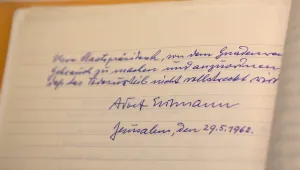 Herr Staatspräsident, von dem Gnadenrecht
Gebrauch zu machen und anzuordnen
daß das Todesurteil nicht vollstreckt wird
Adolf Eichmann
Jerusalem, den 29.5.1962.